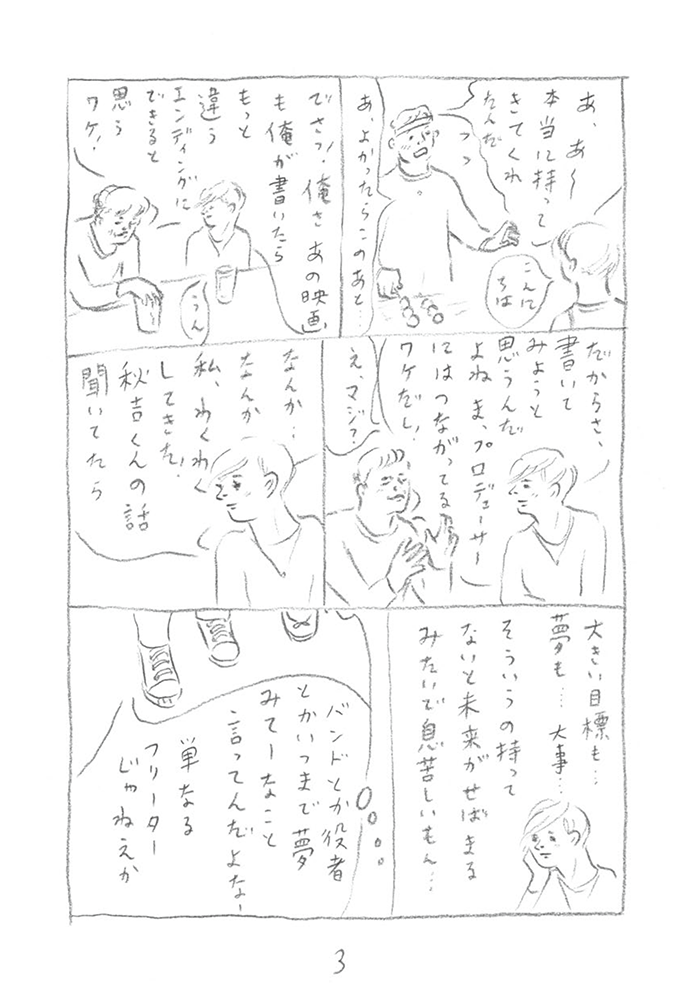 あ、あ〜
本当に持って
きてくれ
たんだ
っっ
こんに
ちは
あ、よかったらこのあと…
でさっ！俺さあの映画
も俺が書いたら
もっと
違う
エンディングに
できると
思う
ワケ！
うん
だからさ、
書いて
みようと
思うんだ
よね ま、プロデューサー
にはつながってる
ワケだし！
え、マジ？
なんか…
なんか
私、わくわく
してきた！
秋吉くんの話
聞いてたら
大きい目標も…
夢も… 大事…
そういうの持って
ないと未来がせばまる
みたいで息苦しいもん…
バンドとか役者
とかいつまで夢
みてーなこと
言ってんだよなー
単なる
フリーター
じゃねえか
3